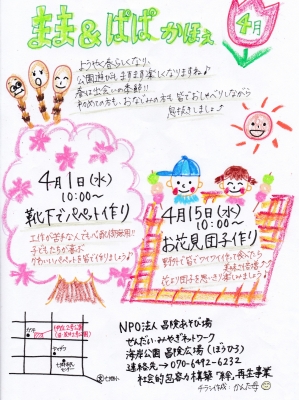 まま&ぱぱ かふぇ
4月
ようやく春らしくなり、
公園遊びもますます楽しくなりますね♪
春は出会いの季節!!
初めての方も、おなじみの方も 皆でおしゃべりしながら
息抜きしましょ♪
4月1日(水)
10:00〜
靴下でパペット作り
工作が苦手な人でも心配御無用!!
子どもたちが喜ぶ
かわいいパペットを皆で作りましょう♪
4月15日(水)
10:00〜
お花見団子作り
野外で皆でワイワイ作って食べたら
美味さ倍増♪
花より団子を思いっきり楽しみましょう♪
NPO法人 冒険あそび場
せんだい・みやぎネットワーク
海岸公園 冒険広場(ぼうひろ)
連絡先→070-6492-6232
社会的包容力構築「絆」再生事業
チラシ作成・かんた母